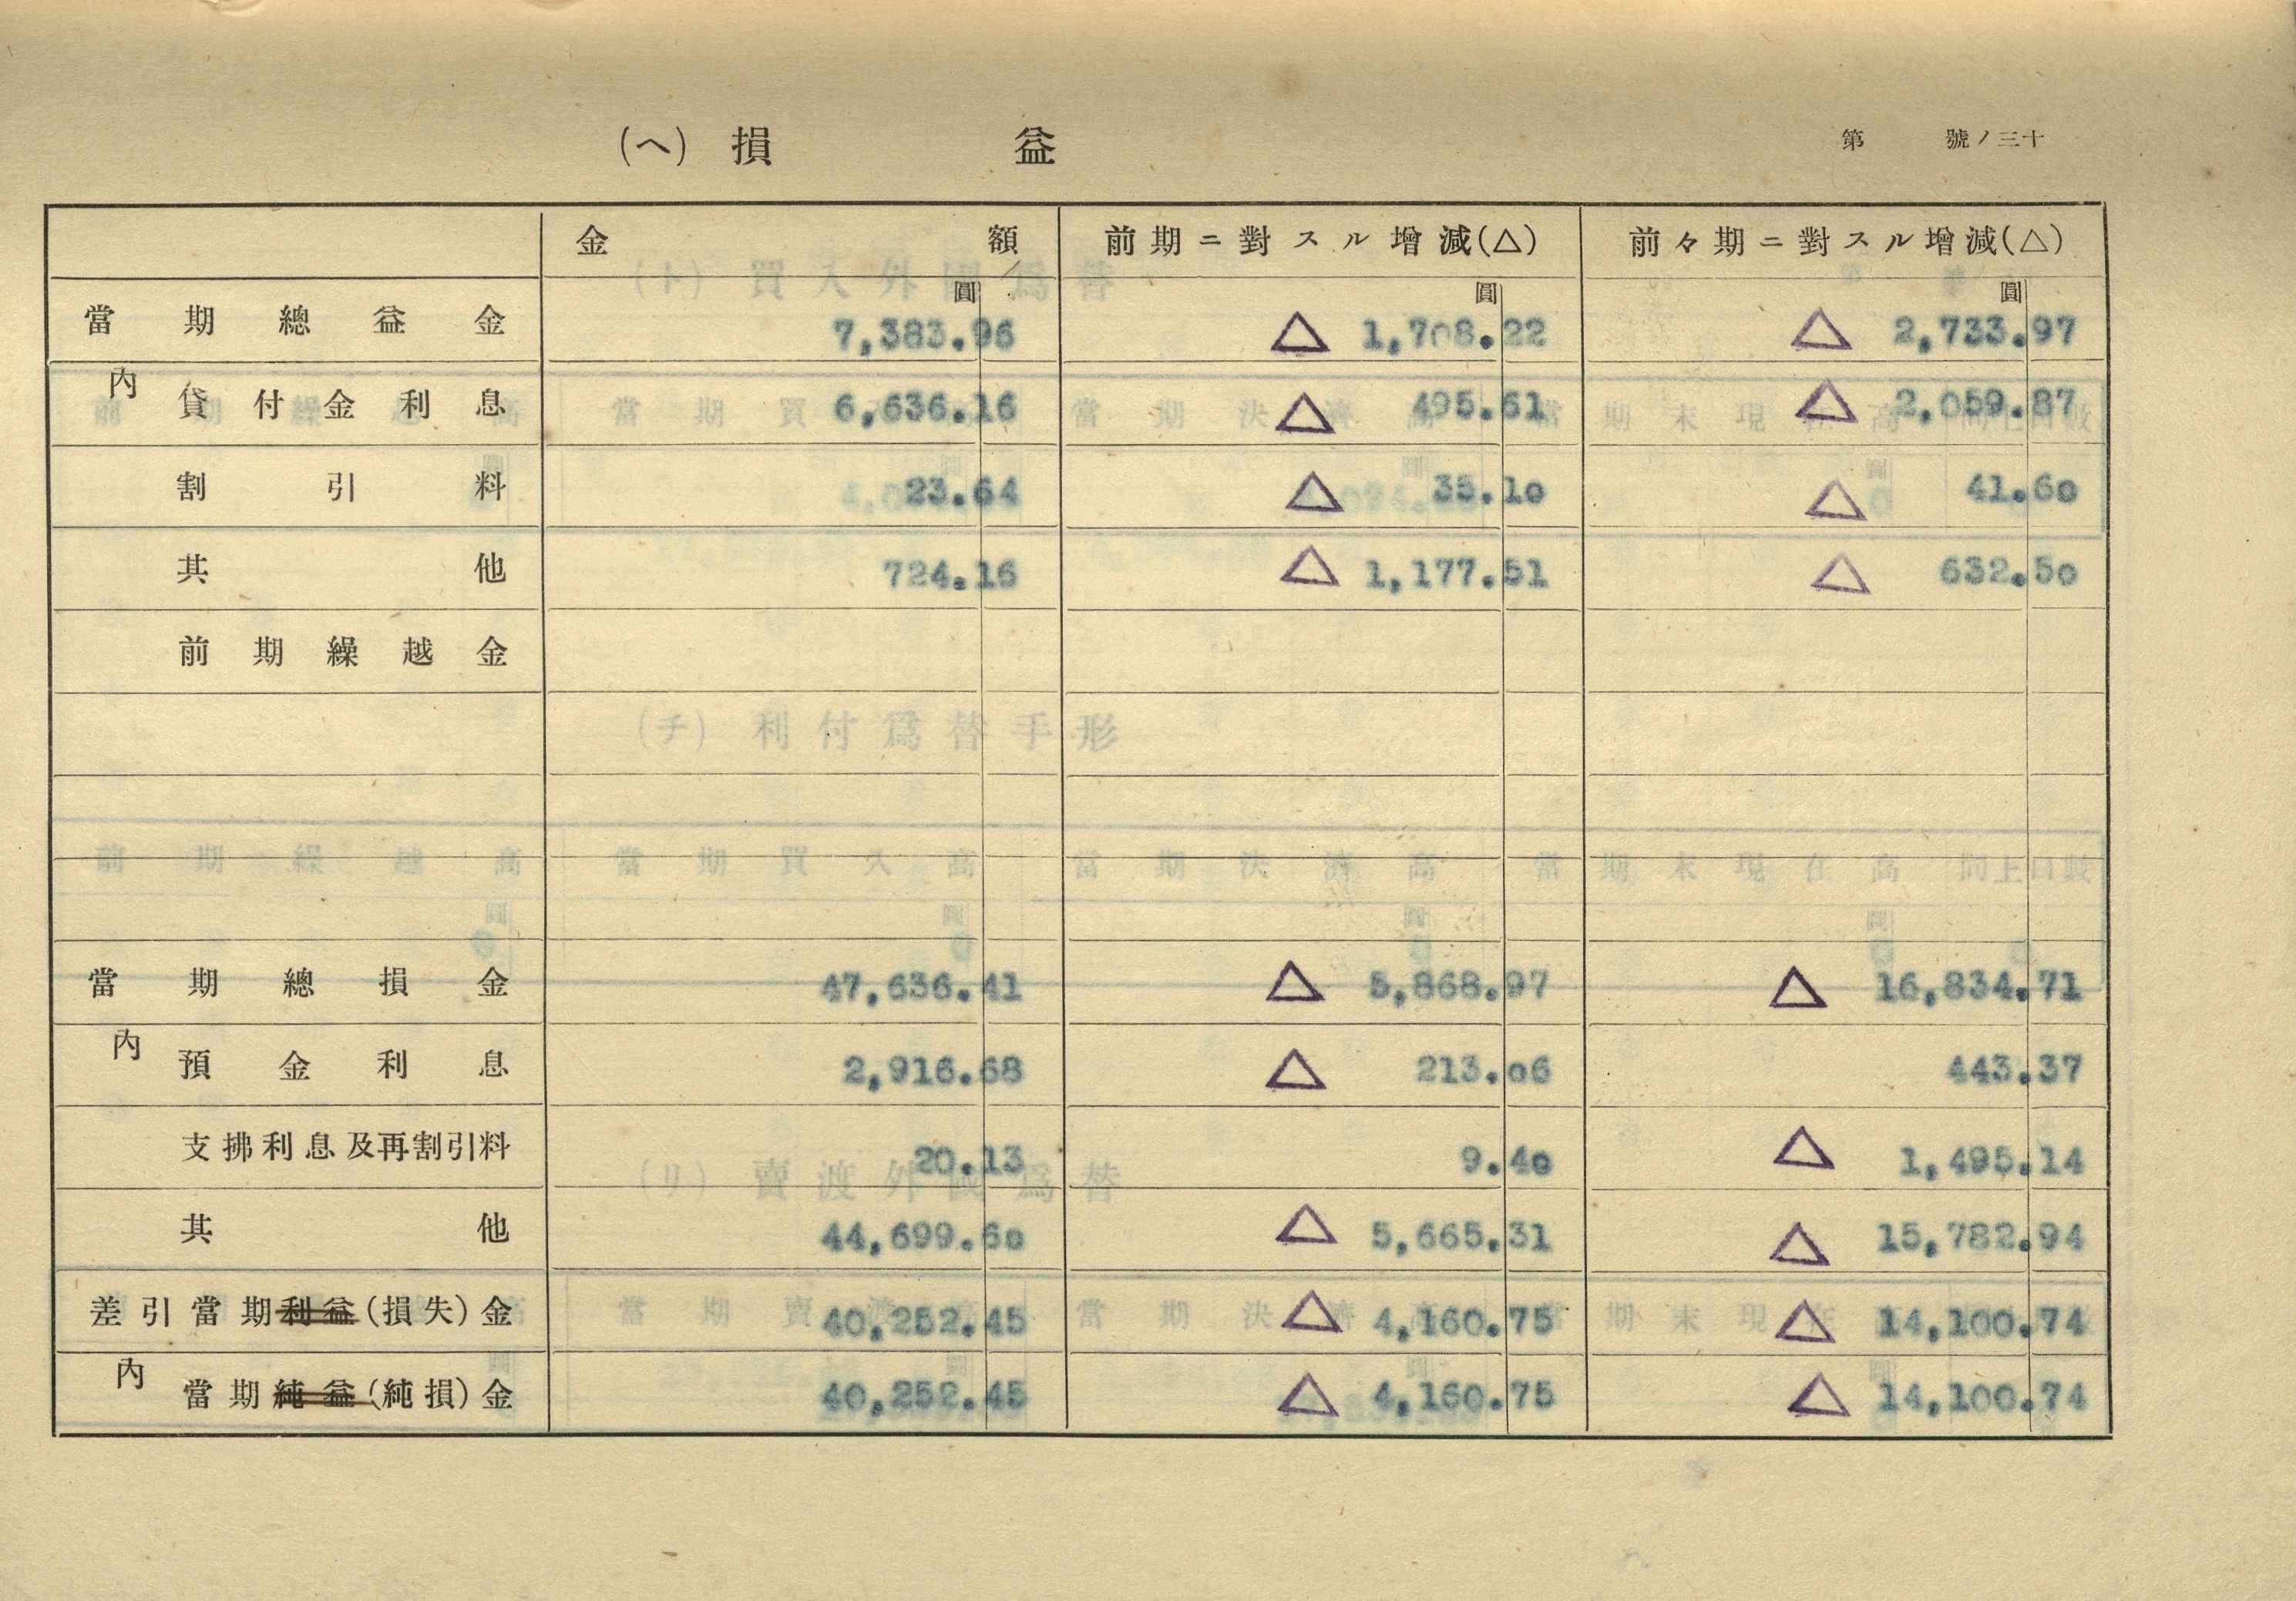 (ヘ) 損 益
第 號ノ三十
金 額 前期ニ對スル增減(△) 前々期ニ對スル增減(△)
圓 圓 圓
當期總益金 7,383.96 △ 1,708.22 △ 2,733.97
內 貸付金利息 6,636.16 △ 495.61 △ 2,059.87
割引料 23.64 △ 35.10 △ 41.60
其他 724.16 △ 1,177.51 △ 632.50
前期繰越金
當期總損金 47,636.41 △ 5,868.97 △ 16,834.71
內 預金利息 2,916.68 △ 213.06 443.37
支拂利息及再割引料 20.13 9.40 △ 1,495.14
其他 44,699.60 △ 5,665.31 △ 15,782.94
差引當期利益(損失)金 40,252.45 △ 4,160.75 △ 14,100.74
內 當期純益(純損)金 40,252.45 △ 4,160.75 △ 14,100.74